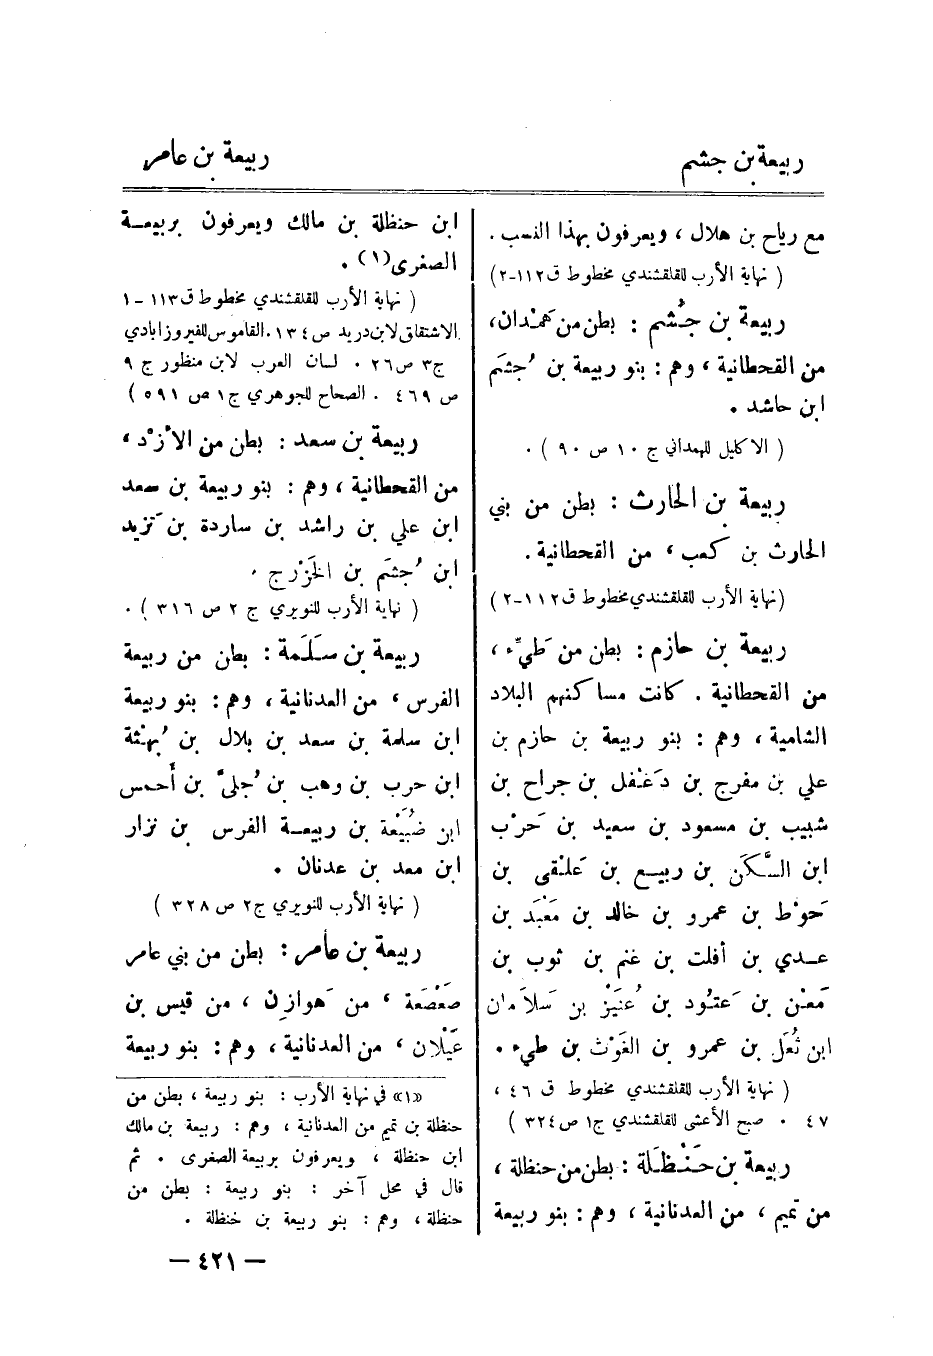 ربيعة بن جشم
ربيعة بن عامر
مع رياح بن هلال ، ويعرفون بهذا النسب .
( نهاية الأرب للقلقشندي مخطوط ق ١١٢-٢)
ربيعة بن جُشم : بطن من هَمْدان،
من القحطانية ، وهم : بنو ربيعة بن جُشَم
ابن حاشد .
( الاكليل للهمداني ج ١٠ ص ٩٠ ) .
ربيعة بن الحارث : بطن من بني
الحارث بن كعب ، من القحطانية .
(نهاية الأرب للقلقشندي مخطوط ق ١١٢-٢)
ربيعة بن حازم : بطن من طَيِّء ،
من القحطانية . كانت مساكنهم البلاد
الشامية ، وهم : بنو ربيعة بن حازم بن
علي بن مفرج بن دَغْفل بن جراح بن
شبيب بن مسعود بن سعيد بن حَرْب
ابن السَّكَن بن ربيع بن عَلْقى بن
حَوْط بن عمرو بن خالد بن مَعْبَد بن
عدي بن أفلت بن غنم بن ثوب بن
مَعْن بن عَتُود بن عُنَيْز بن سَلاَمان
ابن ثُعَل بن عمرو بن الغَوْث بن طيء .
( نهاية الأرب للقلقشندي مخطوط ق ٤٦ ،
٤٧ . صبح الأعشى للقلقشندي ج١ ص ٣٢٤ )
ربيعة بن حَنْظَلة : بطن من حنظلة ،
من تميم ، من العدنانية ، وهم : بنو ربيعة
ابن حنظلة بن مالك ويعرفون بربيعة
الصغرى(١) .
( نهاية الأرب للقلقشندي مخطوط ق ١١٣ - ١
الاشتقاق لابن دريد ص ١٣٤ . القاموس للفيروزابادي
ج٣ ص ٢٦ . لسان العرب لابن منظور ج ٩
ص ٤٦٩ . الصحاح للجوهري ج١ ص ٥٩١ )
ربيعة بن سعد : بطن من الأزْد ،
من القحطانية ، وهم : بنو ربيعة بن سعد
ابن علي بن راشد بن ساردة بن تَزيد
ابن جُشَم بن الخَزْرج .
( نهاية الأرب للنويري ج ٢ ص ٣١٦ ) .
ربيعة بن سَلَمة : بطن من ربيعة
الفرس ، من العدنانية ، وهم : بنو ربيعة
ابن سلمة بن سعد بن بلال بن بُهْثة
ابن حرب بن وهب بن جُلَيّ بن أحمس
ابن ضُبَيْعة بن ربيعة الفرس بن نزار
ابن معد بن عدنان .
( نهاية الأرب للنويري ج٢ ص ٣٢٨ )
ربيعة بن عامر : بطن من بني عامر
صَعْصَعة ، من هَوازن ، من قيس بن
عَيْلان ، من العدنانية ، وهم : بنو ربيعة
«١» في نهاية الأرب : بنو ربيعة ، بطن من
حنظلة بن تميم من العدنانية ، وهم : ربيعة بن مالك
ابن حنظلة ، ويعرفون بربيعة الصغرى . ثم
قال في محل آخر : بنو ربيعة : بطن من
حنظلة ، وهم : بنو ربيعة بن خنظلة .
— ٤٢١ —